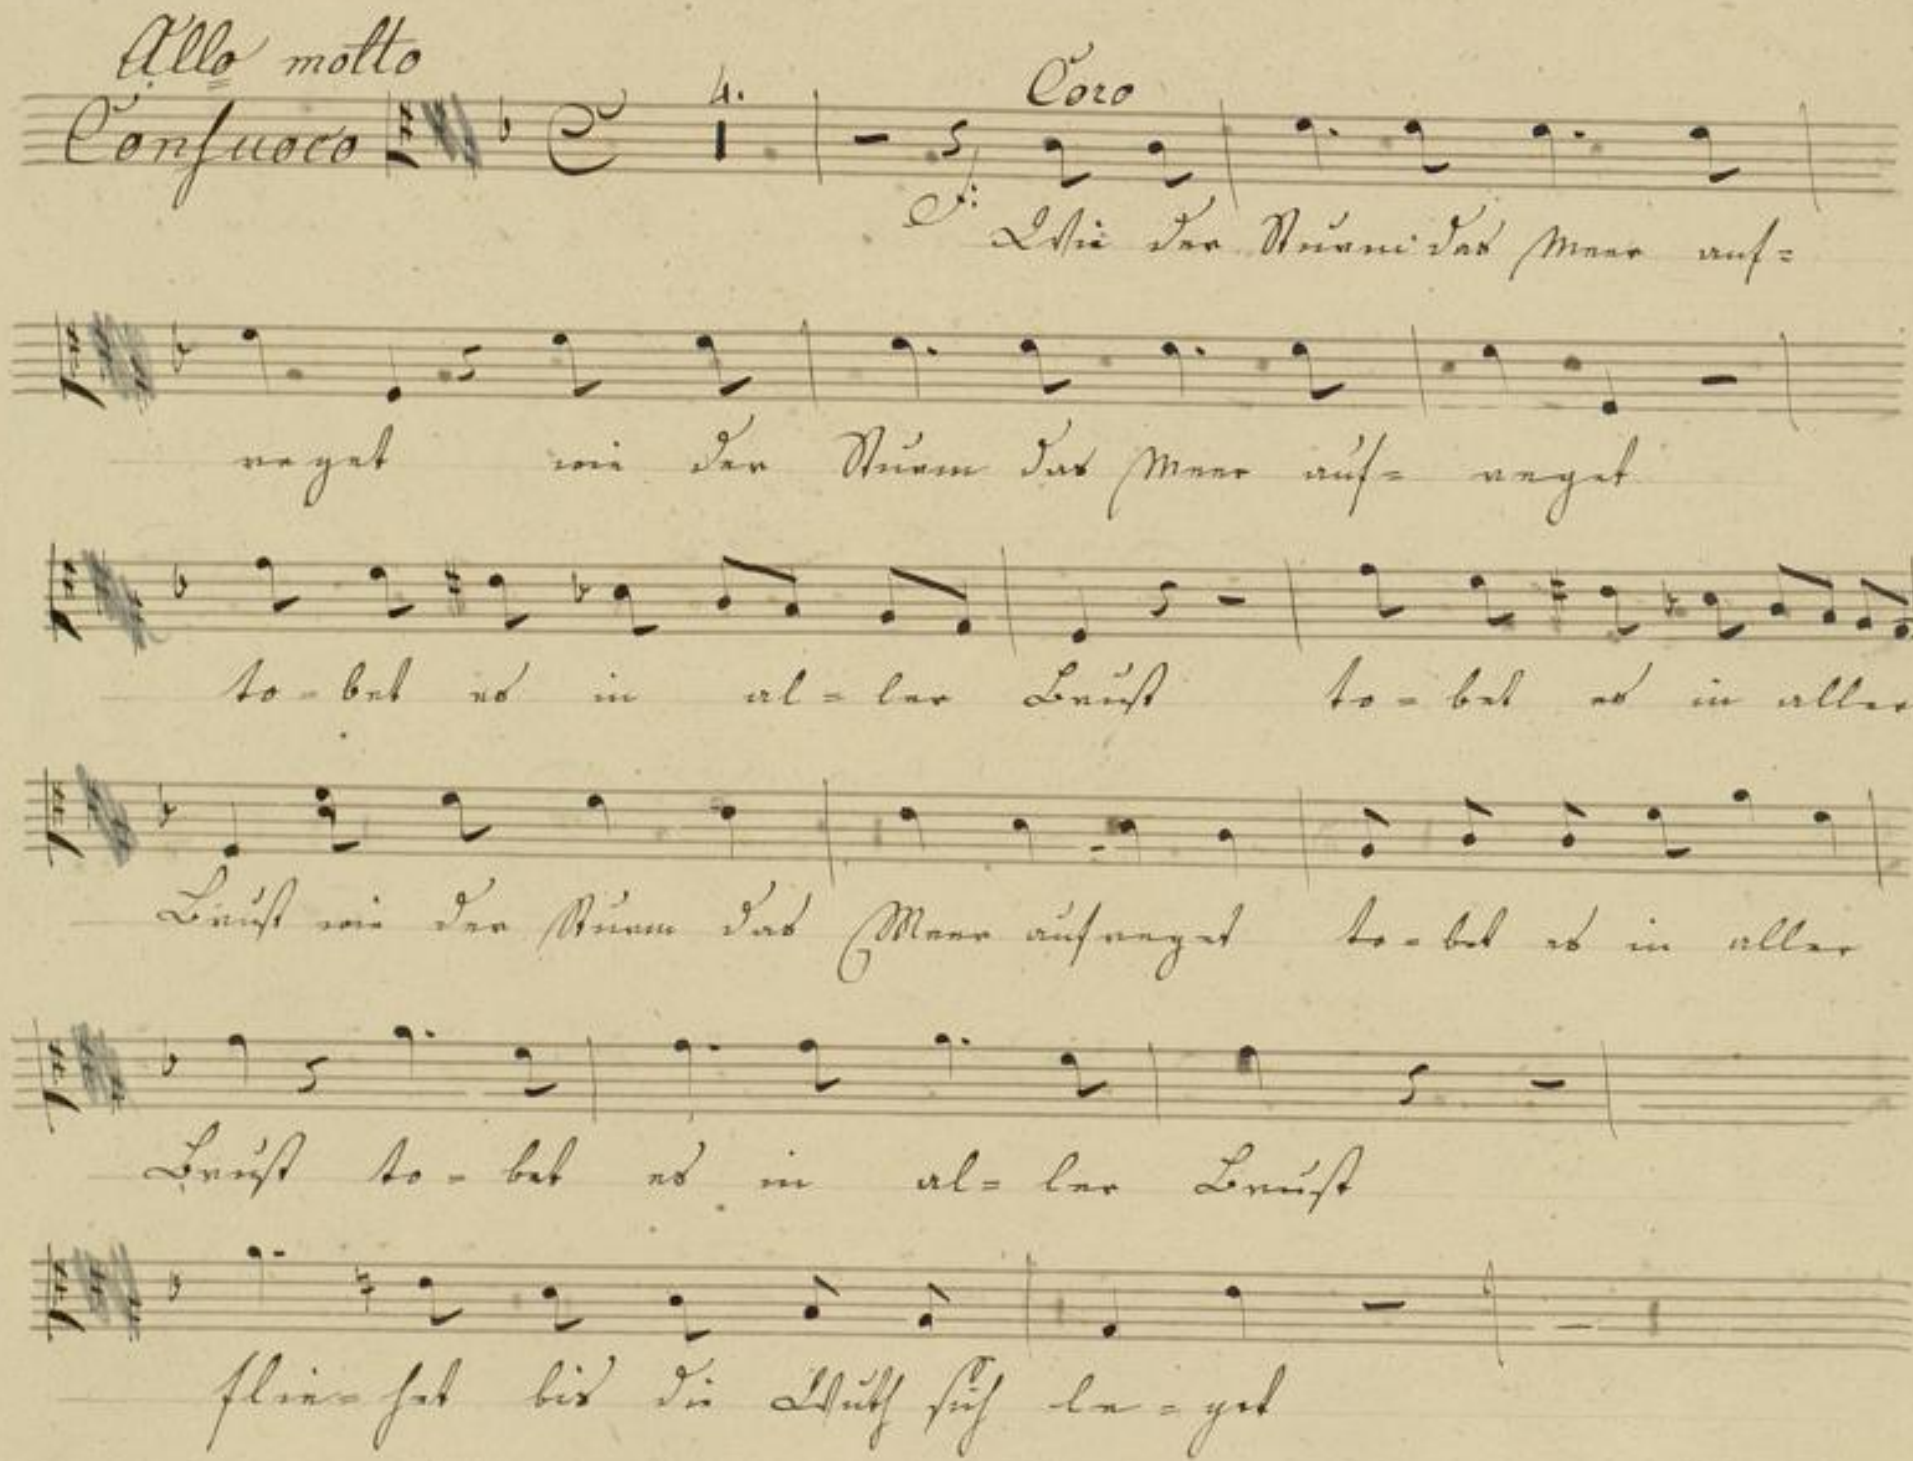 Allo molto
Con fuoco 4. Coro
F: Wie der Sturm das Meer auf=
reget wie der Sturm das Meer auf= reget
to - bet es in al = ler Brust to = bet es in aller
Brust wie der Sturm das Meer aufreget to = bet es in aller
Brust to - bet es in al= ler Brust
flie= het bis die Wuth sich le = get